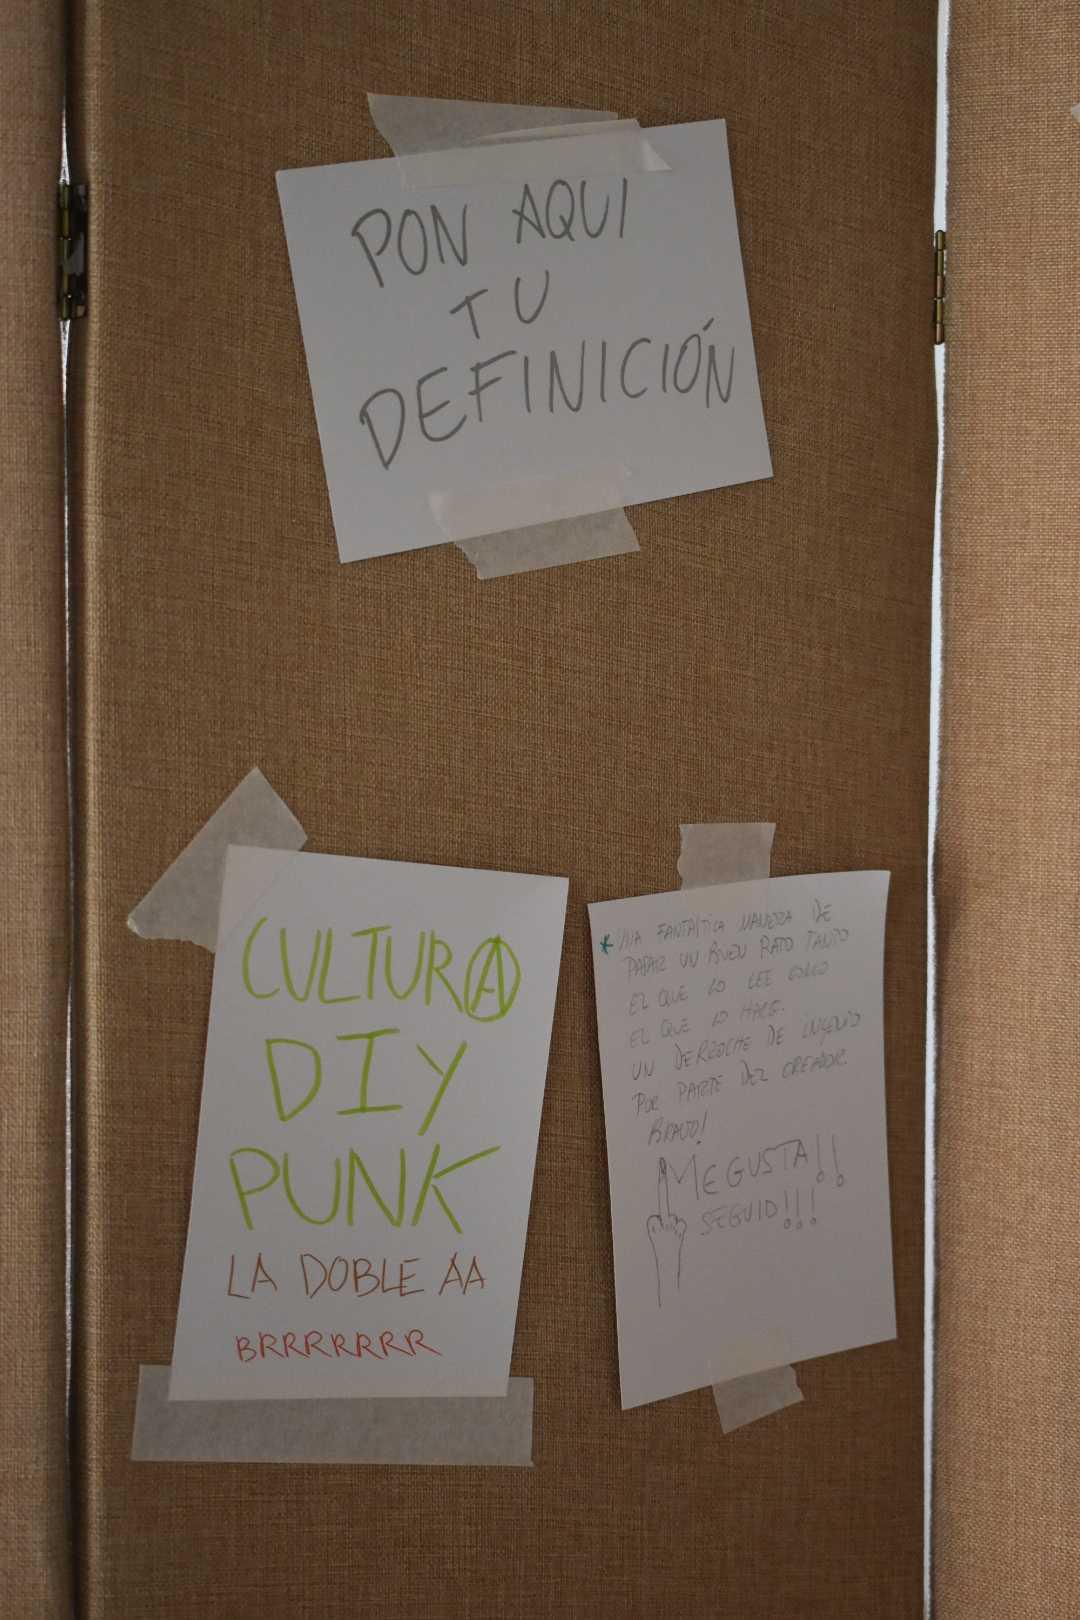 PON AQUI
TU
DEFINICIÓN
CULTURA
DIY
PUNK
LA DOBLE AA
BRRRRRRR
* UNA FANTASTICA MANERA DE
PASAR UN BUEN RATO TANTO
EL QUE LO LEE COMO
EL QUE LO HACE.
UN DERROCHE DE INGENIO
POR PARTE DEL CREADOR
BRAVO!
ME GUSTA!!
SEGUID!!!